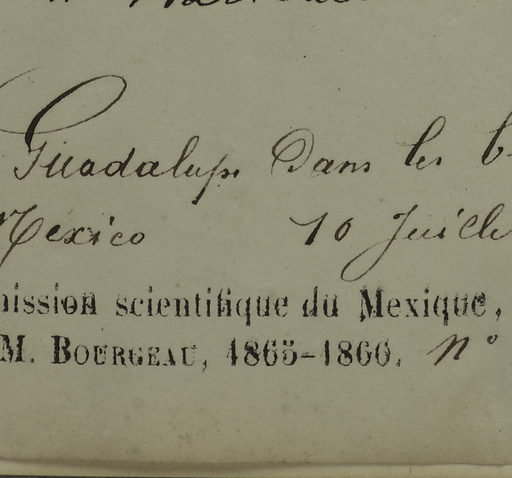 Guadalupe dans les b
Mexico 10 Juille
mission scientifique du Mexique,
M. BOURGEAU, 1865-1866. n°